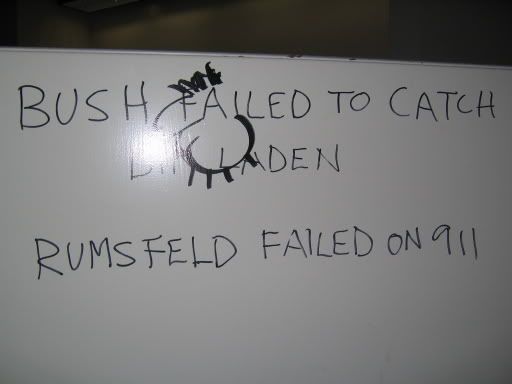 BUSH FAILED TO CATCH
BIN LADEN
RUMSFELD FAILED ON 911